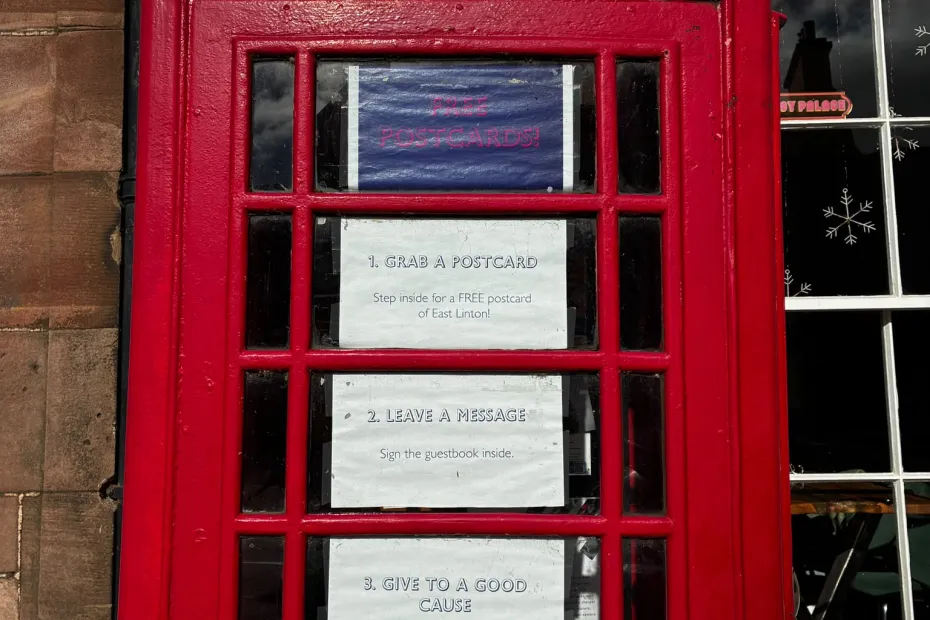 FREE
POSTCARDS!
OY PALACE
1. GRAB A POSTCARD
Step inside for a FREE postcard
of East Linton!
2. LEAVE A MESSAGE
Sign the guestbook inside.
3. GIVE TO A GOOD
CAUSE